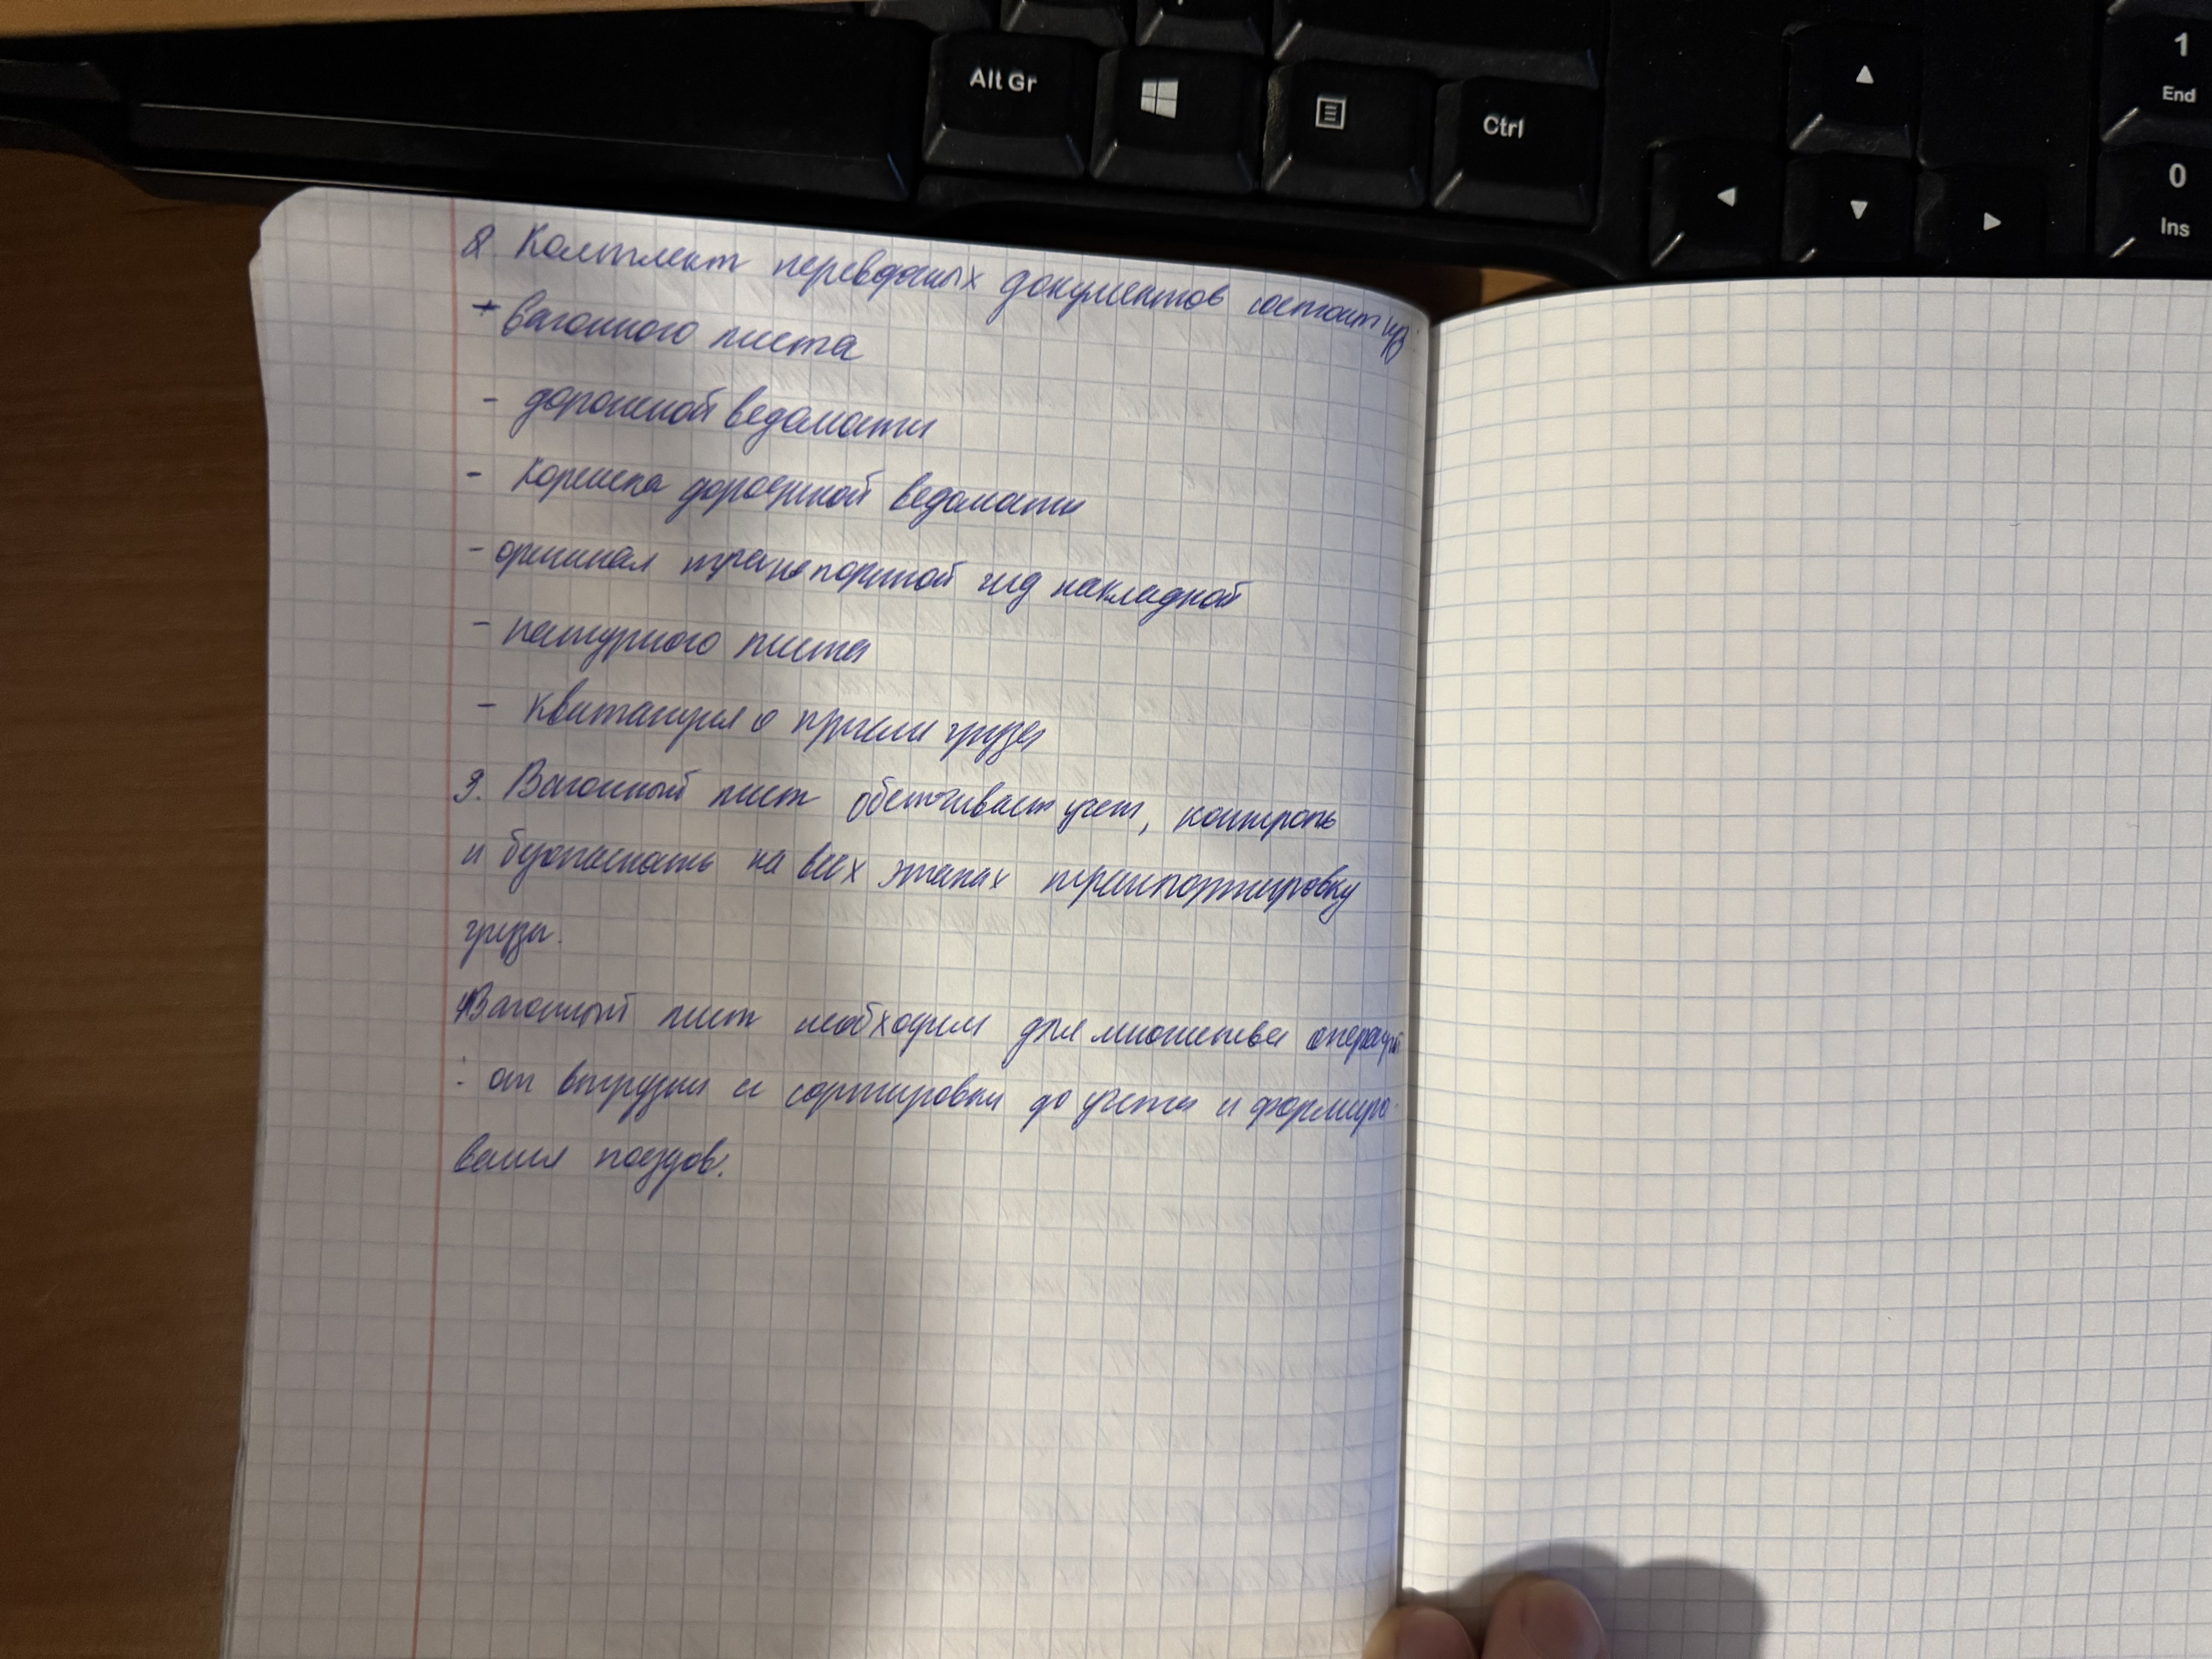 Alt Gr
Ctrl
1
End
0
Ins
8. Комплект перевозных документов состоит из:
- вагонного листа
- дорожной ведомости
- корешка дорожной ведомости
- оригинал транспортной жд накладной
- натурного листа
- квитанция о приеме груза
9. Вагонный лист обеспечивает учет, контроль
и безопасность на всех этапах транспортировку
груза.
Вагонный лист необходим для множества операций
: от выгрузки и сортировки до учета и формиро-
вания поездов.